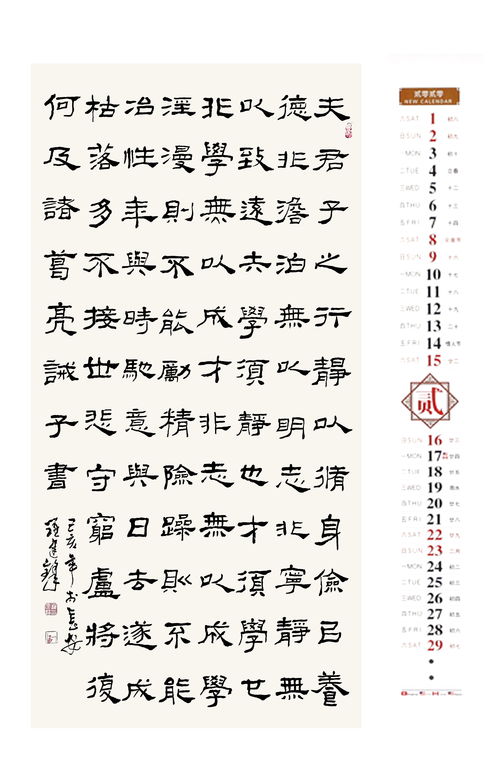 夫君子之行靜以脩身儉㠯養
德非澹泊無以明志非寧靜無
以致遠夫學須靜也才須學也
非學無以成才非志無以成學
淫漫則不能勵精險躁則不能
冶性年與時馳意與日去遂成
枯落多不接世悲守窮盧將復
何及諸葛亮誡子書
己亥年於長安
贰零贰零
NEW CALENDAR
六SAT 1 初八
日SUN 2 初九
一MON 3 初十
二TUE 4 立春
三WED 5 十二
四THU 6 十三
五FRI 7 十四
六SAT 8 元宵节
日SUN 9 十六
一MON 10 十七
二TUE 11 十八
三WED 12 十九
四THU 13 二十
五FRI 14 情人节
六SAT 15 廿二
贰
日SUN 16 廿三
一MON 17 廿四
二TUE 18 廿五
三WED 19 雨水
四THU 20 廿七
五FRI 21 廿八
六SAT 22 廿九
日SUN 23 二月
一MON 24 初二
二TUE 25 初三
三WED 26 初四
四THU 27 初五
五FRI 28 初六
六SAT 29 初七